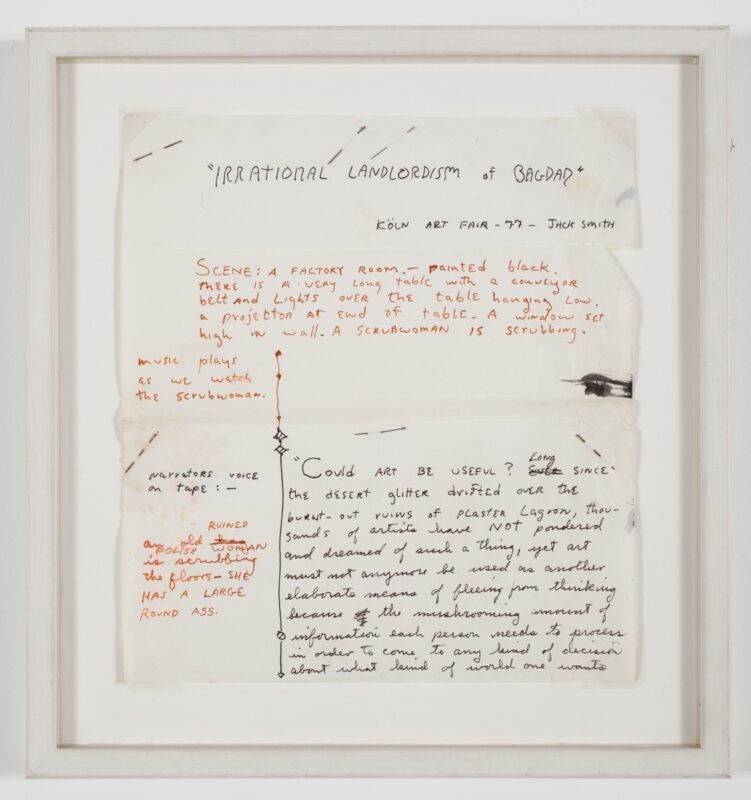 "IRRATIONAL LANDLORDISM of BAGDAD"
KÖLN ART FAIR - 77 - JACK SMITH
SCENE: A FACTORY ROOM. - painted black.
there is a very long table with a conveyor
belt and Lights over the table hanging low.
a projector at end of table. A window set
high in wall. A scrubwoman is scrubbing.
music plays
as we watch
the scrubwoman.
narrators voice
on tape : -
RUINED
an old
POLISH WOMAN
is scrubbing
the floors - SHE
HAS A LARGE
ROUND ASS.
"Could ART BE USEFUL? Long SINCE
the desert glitter drifted over the
burnt-out ruins of PLASTER LAGOON, thou-
sands of artists have NOT pondered
and dreamed of such a thing, yet art
must not anymore be used as another
elaborate means of fleeing from thinking
because the mushrooming amount of
information each person needs to process
in order to come to any kind of decision
about what kind of world one wants